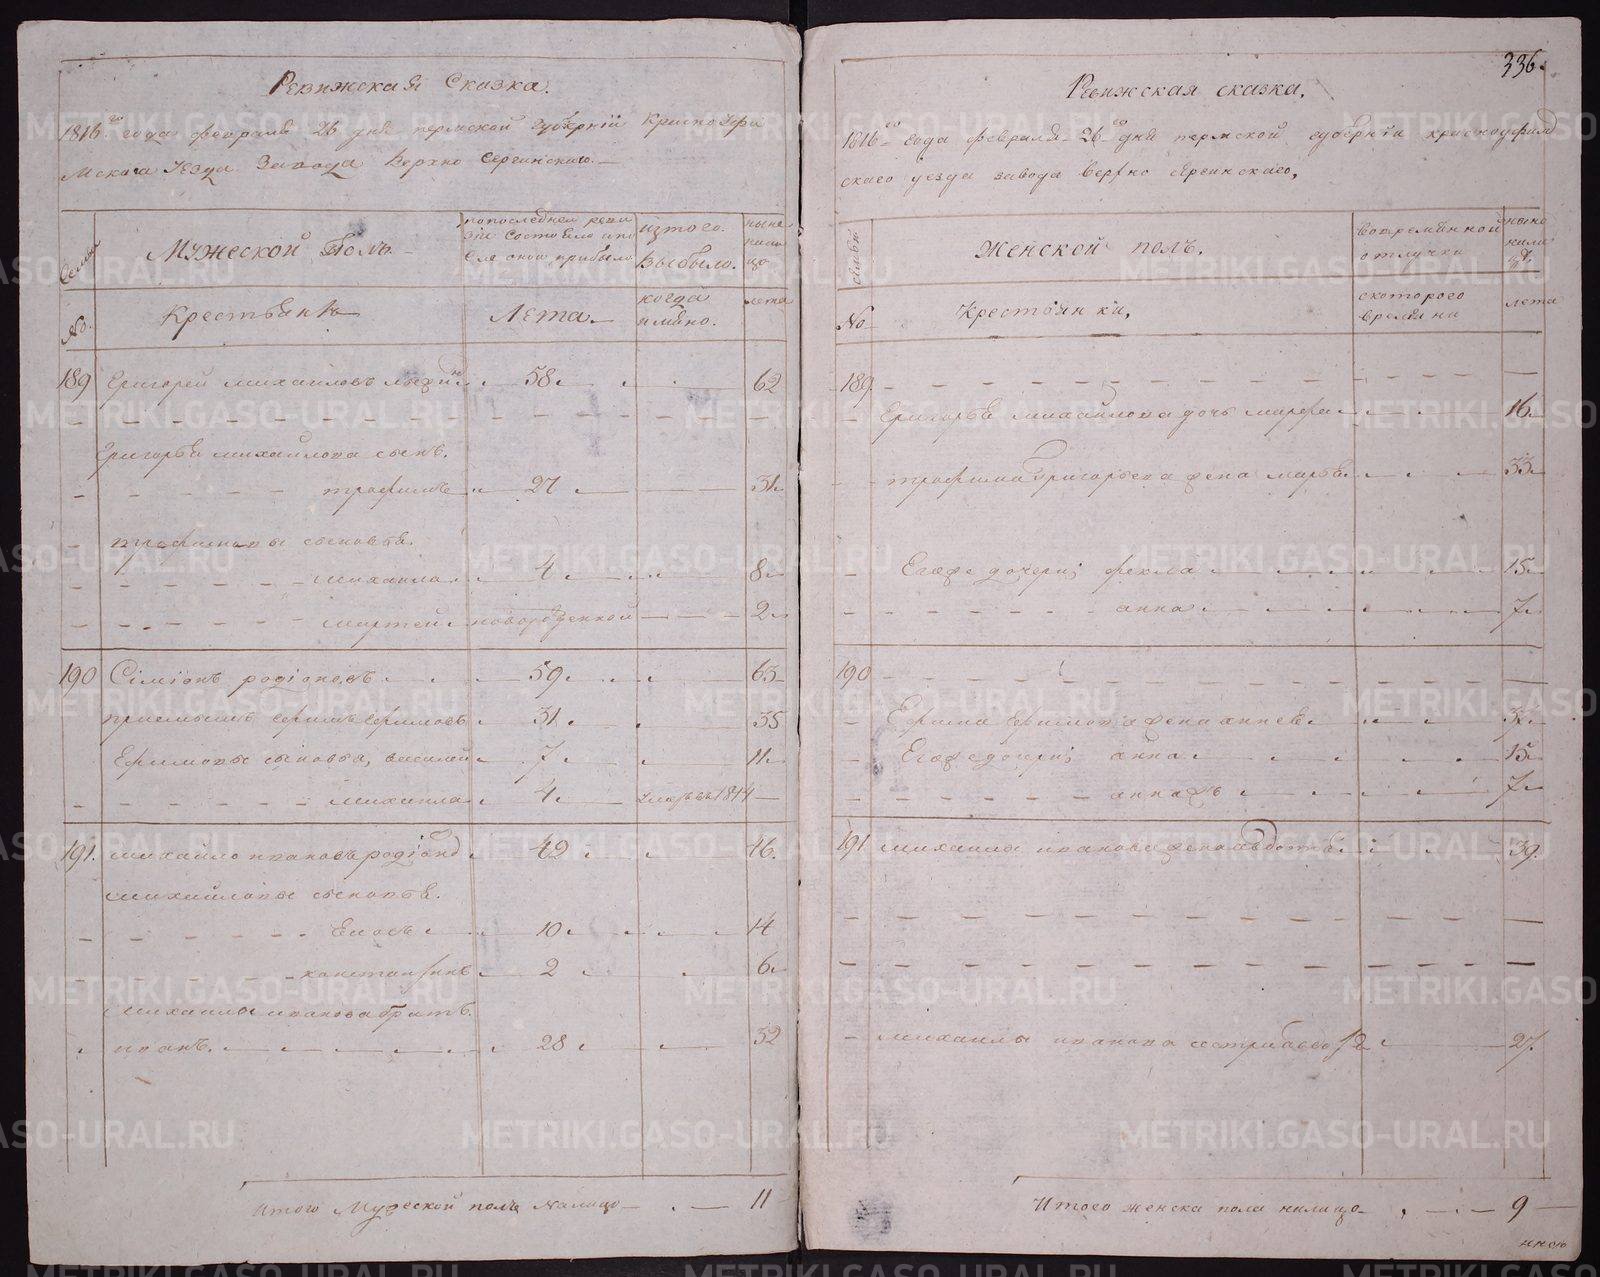 Ревижская Сказка.
1816го года февраля 26 дня пермской губернiи Красноуфи
мскага Уезда Завода Верхно Сергинскаго.
семьи
Мужеской Полъ.
попоследней реви
зiи состояло ипо
сле оной прибыло
изтого
выбыло.
ныне
нали
цо
№.
Крестьянъ
Лета.
когда
имяно.
лета
189 Григорей михаиловъ 58 62
Григорья михаилова сынъ.
трофимъ 27 31
трофимовы сыновья.
михаила 4 8
мартей новорожденной 2
190 Сiмiонъ родiоновъ 59 63
приемышъ ефимъ ефимовъ 31 35
Ефимовы сыновья, василей 7 11
михаила 4 умре въ 1814
191. михайло ивановъ родiоно 42 46.
михайловы сыновья.
Власъ 10 14
константинъ 2 6
михаилы иванова братъ
иванъ. 28 32
Итого Мужеской полъ Налицо 11
336.
Ревижская сказка.
1816го года февраля 26го дня пермской губернiи красноуфим
скаго уезда завода верхно сергинскаго,
семьи
Женской полъ.
вовременной
отлучке
ныне
нали
цо
No
Крестьянки,
скоторого
времяни
лета
189.
Григорья михаилова дочь марфа 16
трофима Григорьева жена марья 33
Егоже дочери; фекла 15
анна 7
190
Ефима Ефимова жена
Егоже дочери; анна 15
7
191 михаилы иванова жена авдотья 39.
михаилы иванова сестра 27.
Итого женска пола налицо 9
METRIKI.GASO-URAL.RU